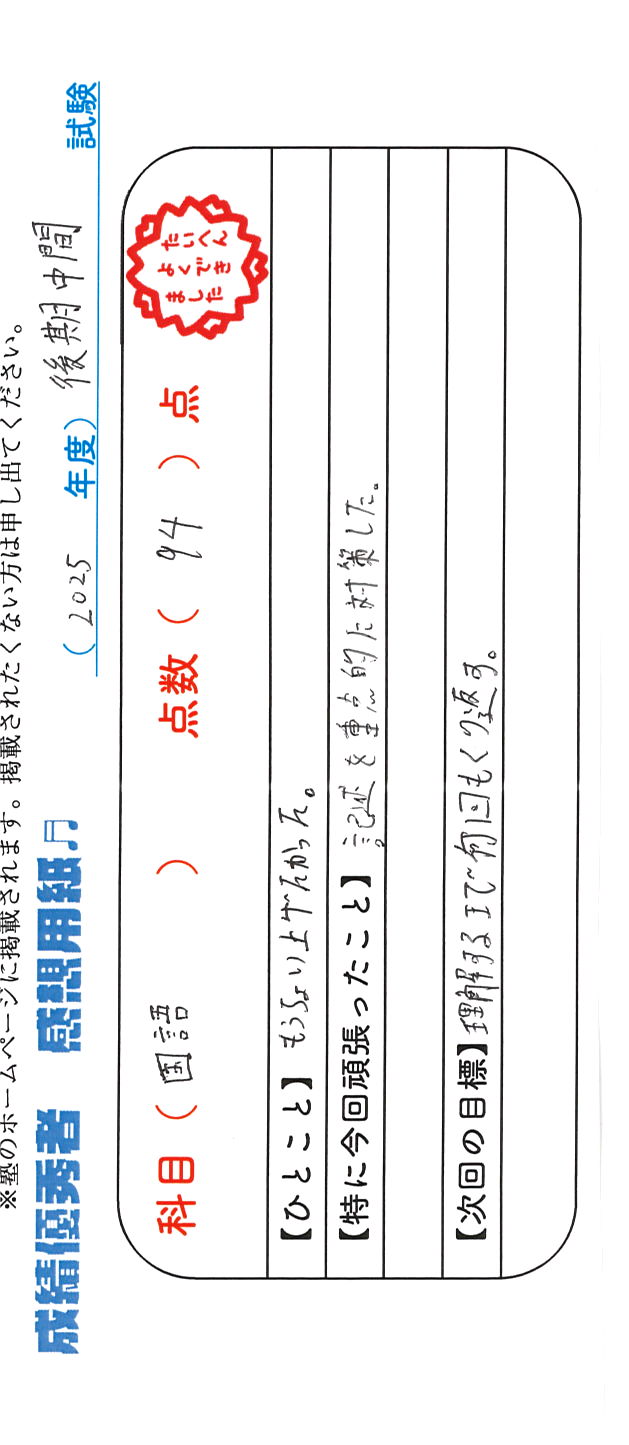 ※塾のホームページに掲載されます。掲載されたくない方は申し出てください。
成績優秀者 感想用紙♫ (2025 年度) 後期中間 試験
科目 ( 国語 ) 点数 ( 94 ) 点
たいへん
よくでき
ました
【ひとこと】もうちょい上げたかった。
【特に今回頑張ったこと】記述を重点的に対策した。
【次回の目標】理解するまで何回もくり返す。